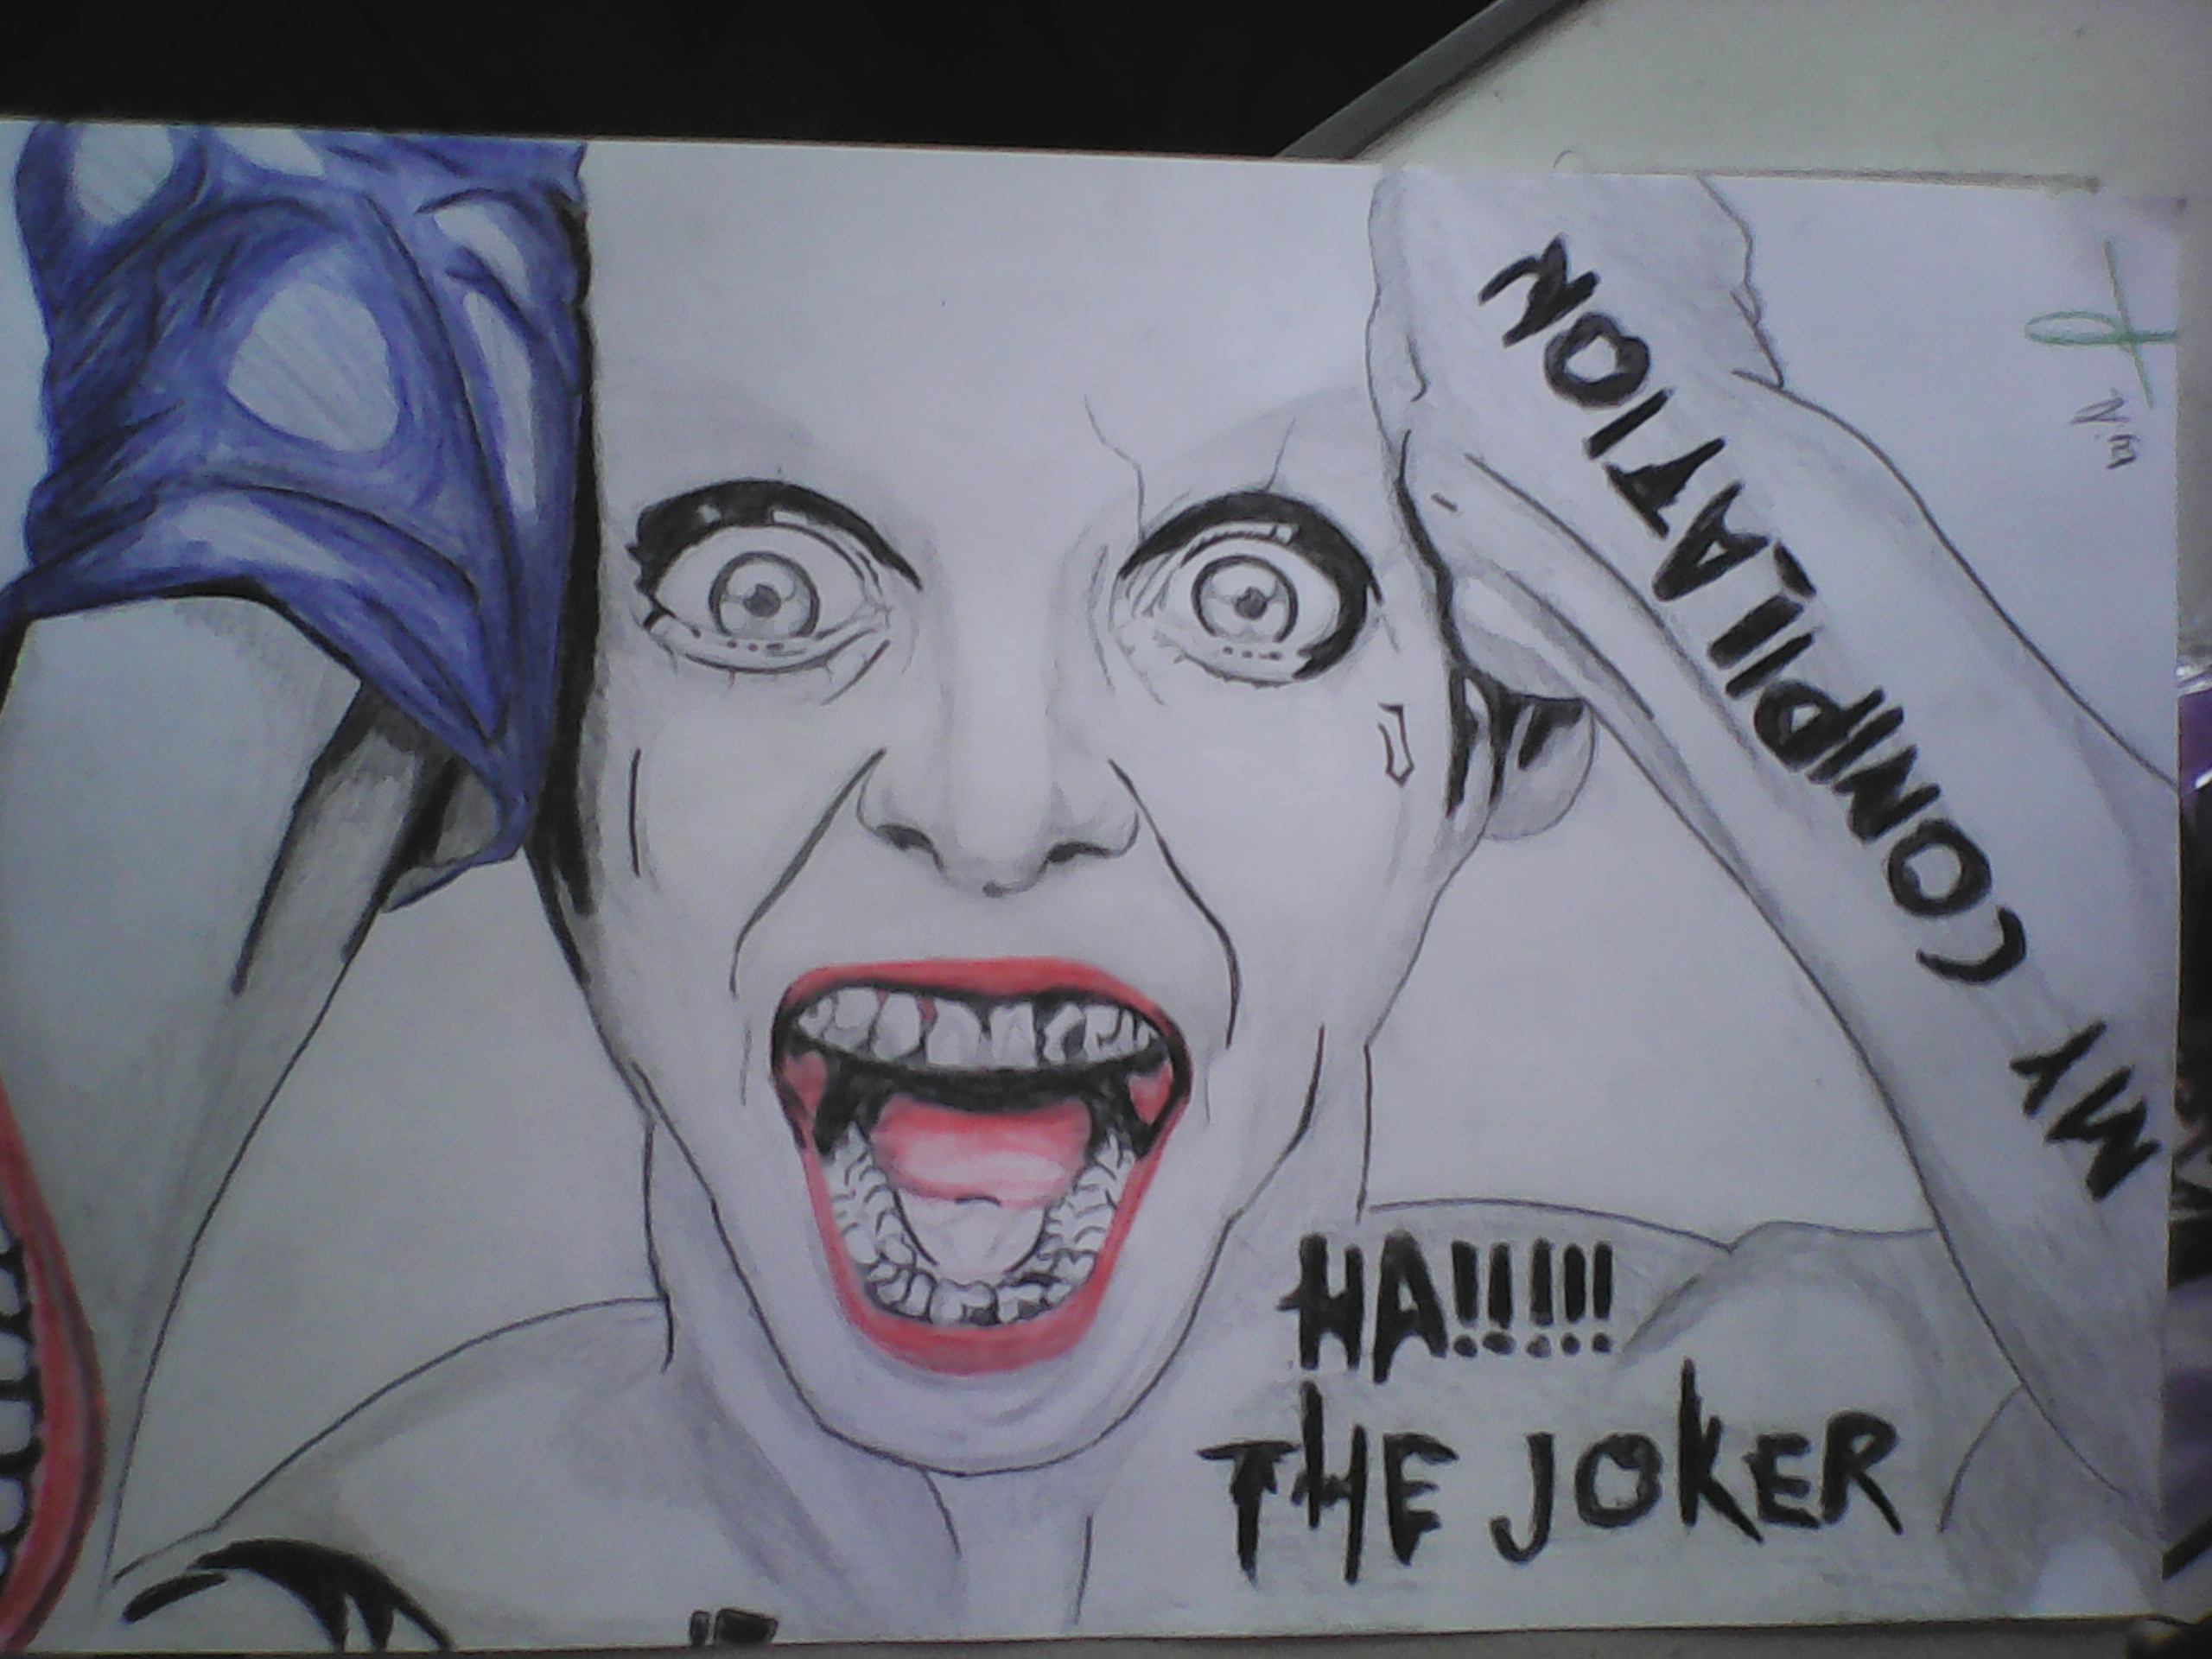 MY COMPILATION
HA!!!!!
THE JOKER